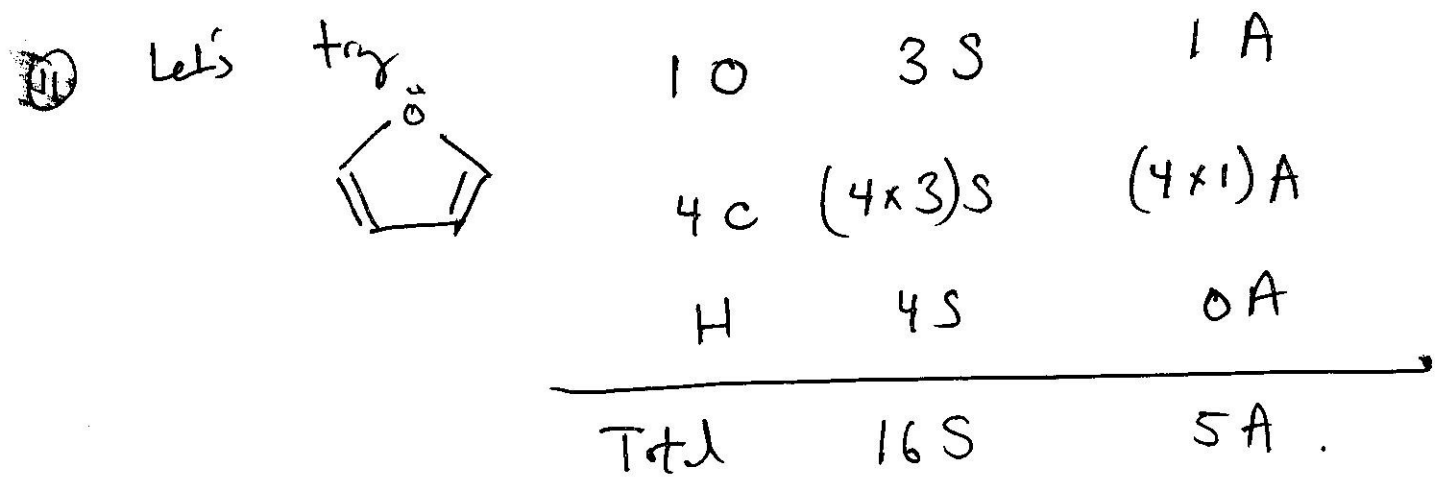 ④ Let's try
Ö
1 O 3 S 1 A
4 C (4×3)S (4×1)A
H 4 S 0 A
Total 16 S 5 A .